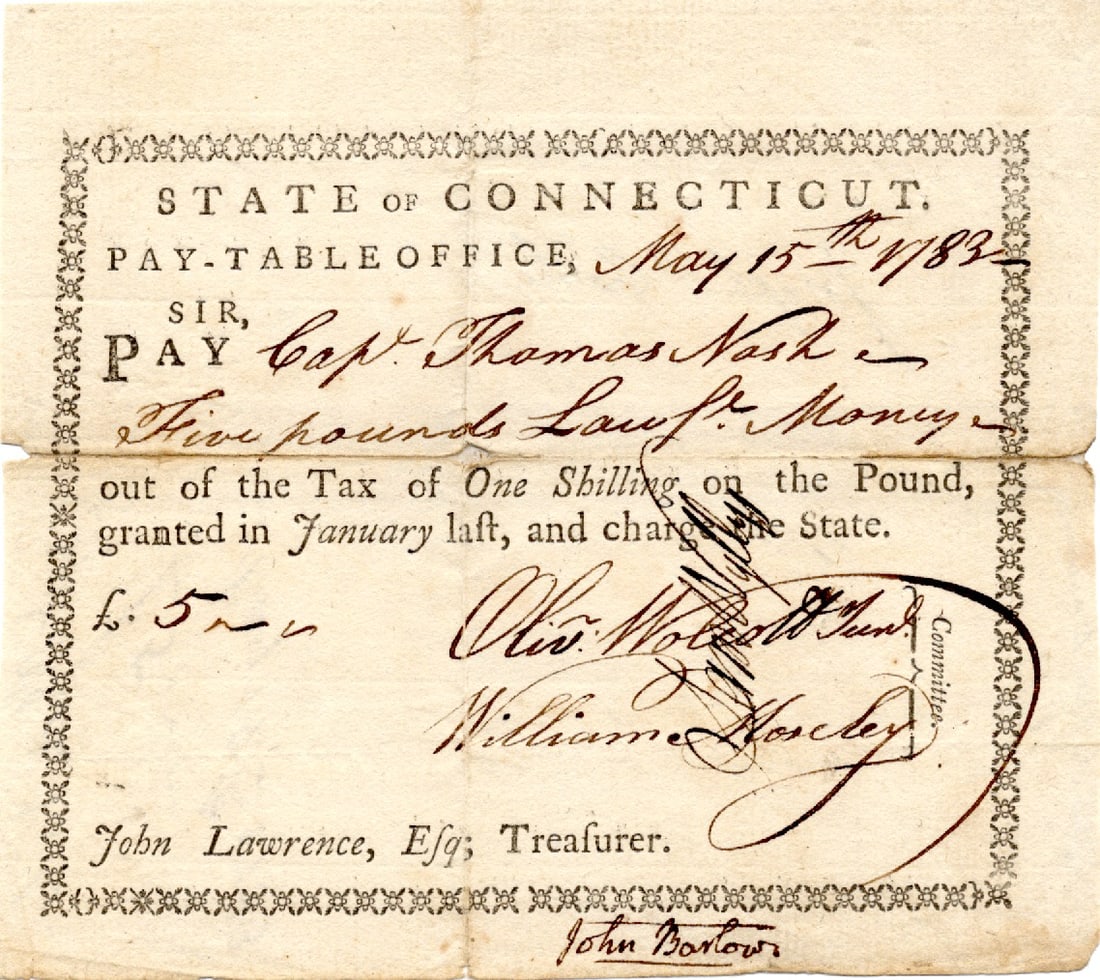 STATE OF CONNECTICUT.
PAY-TABLE OFFICE, May 15th 1783
SIR,
PAY Capt. Thomas Nash
Five pounds Lawfl. Money
out of the Tax of One Shilling on the Pound,
granted in January laſt, and charge the State.
£. 5
Olivr. Wolcott Junr.
William Moseley
Committee.
John Lawrence, Eſq; Treaſurer.
John Barlow